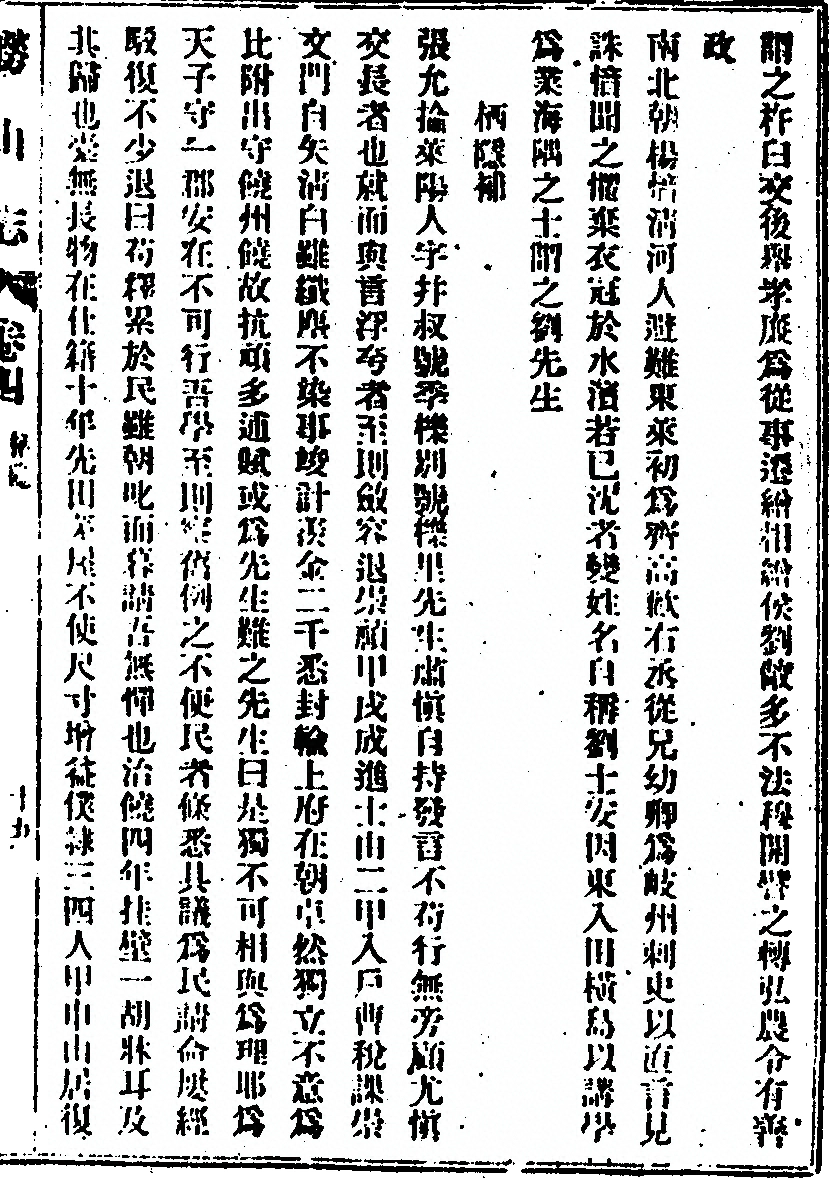 謂之杵臼交後舉孝廉為從事遷繒相繒侯劉敞多不法稜開譬之轉弘農令有善
政
南北朝楊愔清河人避難東萊初為齊高歡右丞從兄幼卿為岐州刺史以直言見
誅愔聞之懼棄衣冠於水濱若已沈者變姓名自稱劉士安因東入田橫島以講學
為業海隅之士謂之劉先生
栖隱補
張允掄萊陽人字井叔號季櫟別號櫟里先生肅慎自持發言不苟行無旁顧尤慎
交長者也就而與言浮夸者至則斂容退崇禎甲戌成進士由二甲入戶曹稅課崇
文門自矢清白雖纖塵不染事竣計羨金二千悉封輸上府在朝卓然獨立不意為
比附出守饒州饒故抗頑多逋賦或為先生難之先生曰是獨不可相與為理耶為
天子守一郡安在不可行吾學至則宿例之不便民者條悉具議為民請命屢經
駁復不少退曰苟釋累於民雖朝叱而暮請吾無憚也治饒四年挂壁一胡牀耳及
其歸也槖無長物在仕籍十年先田茅屋不使尺寸增徒僕隸三四人甲申山居復
勞山志 卷四
十九